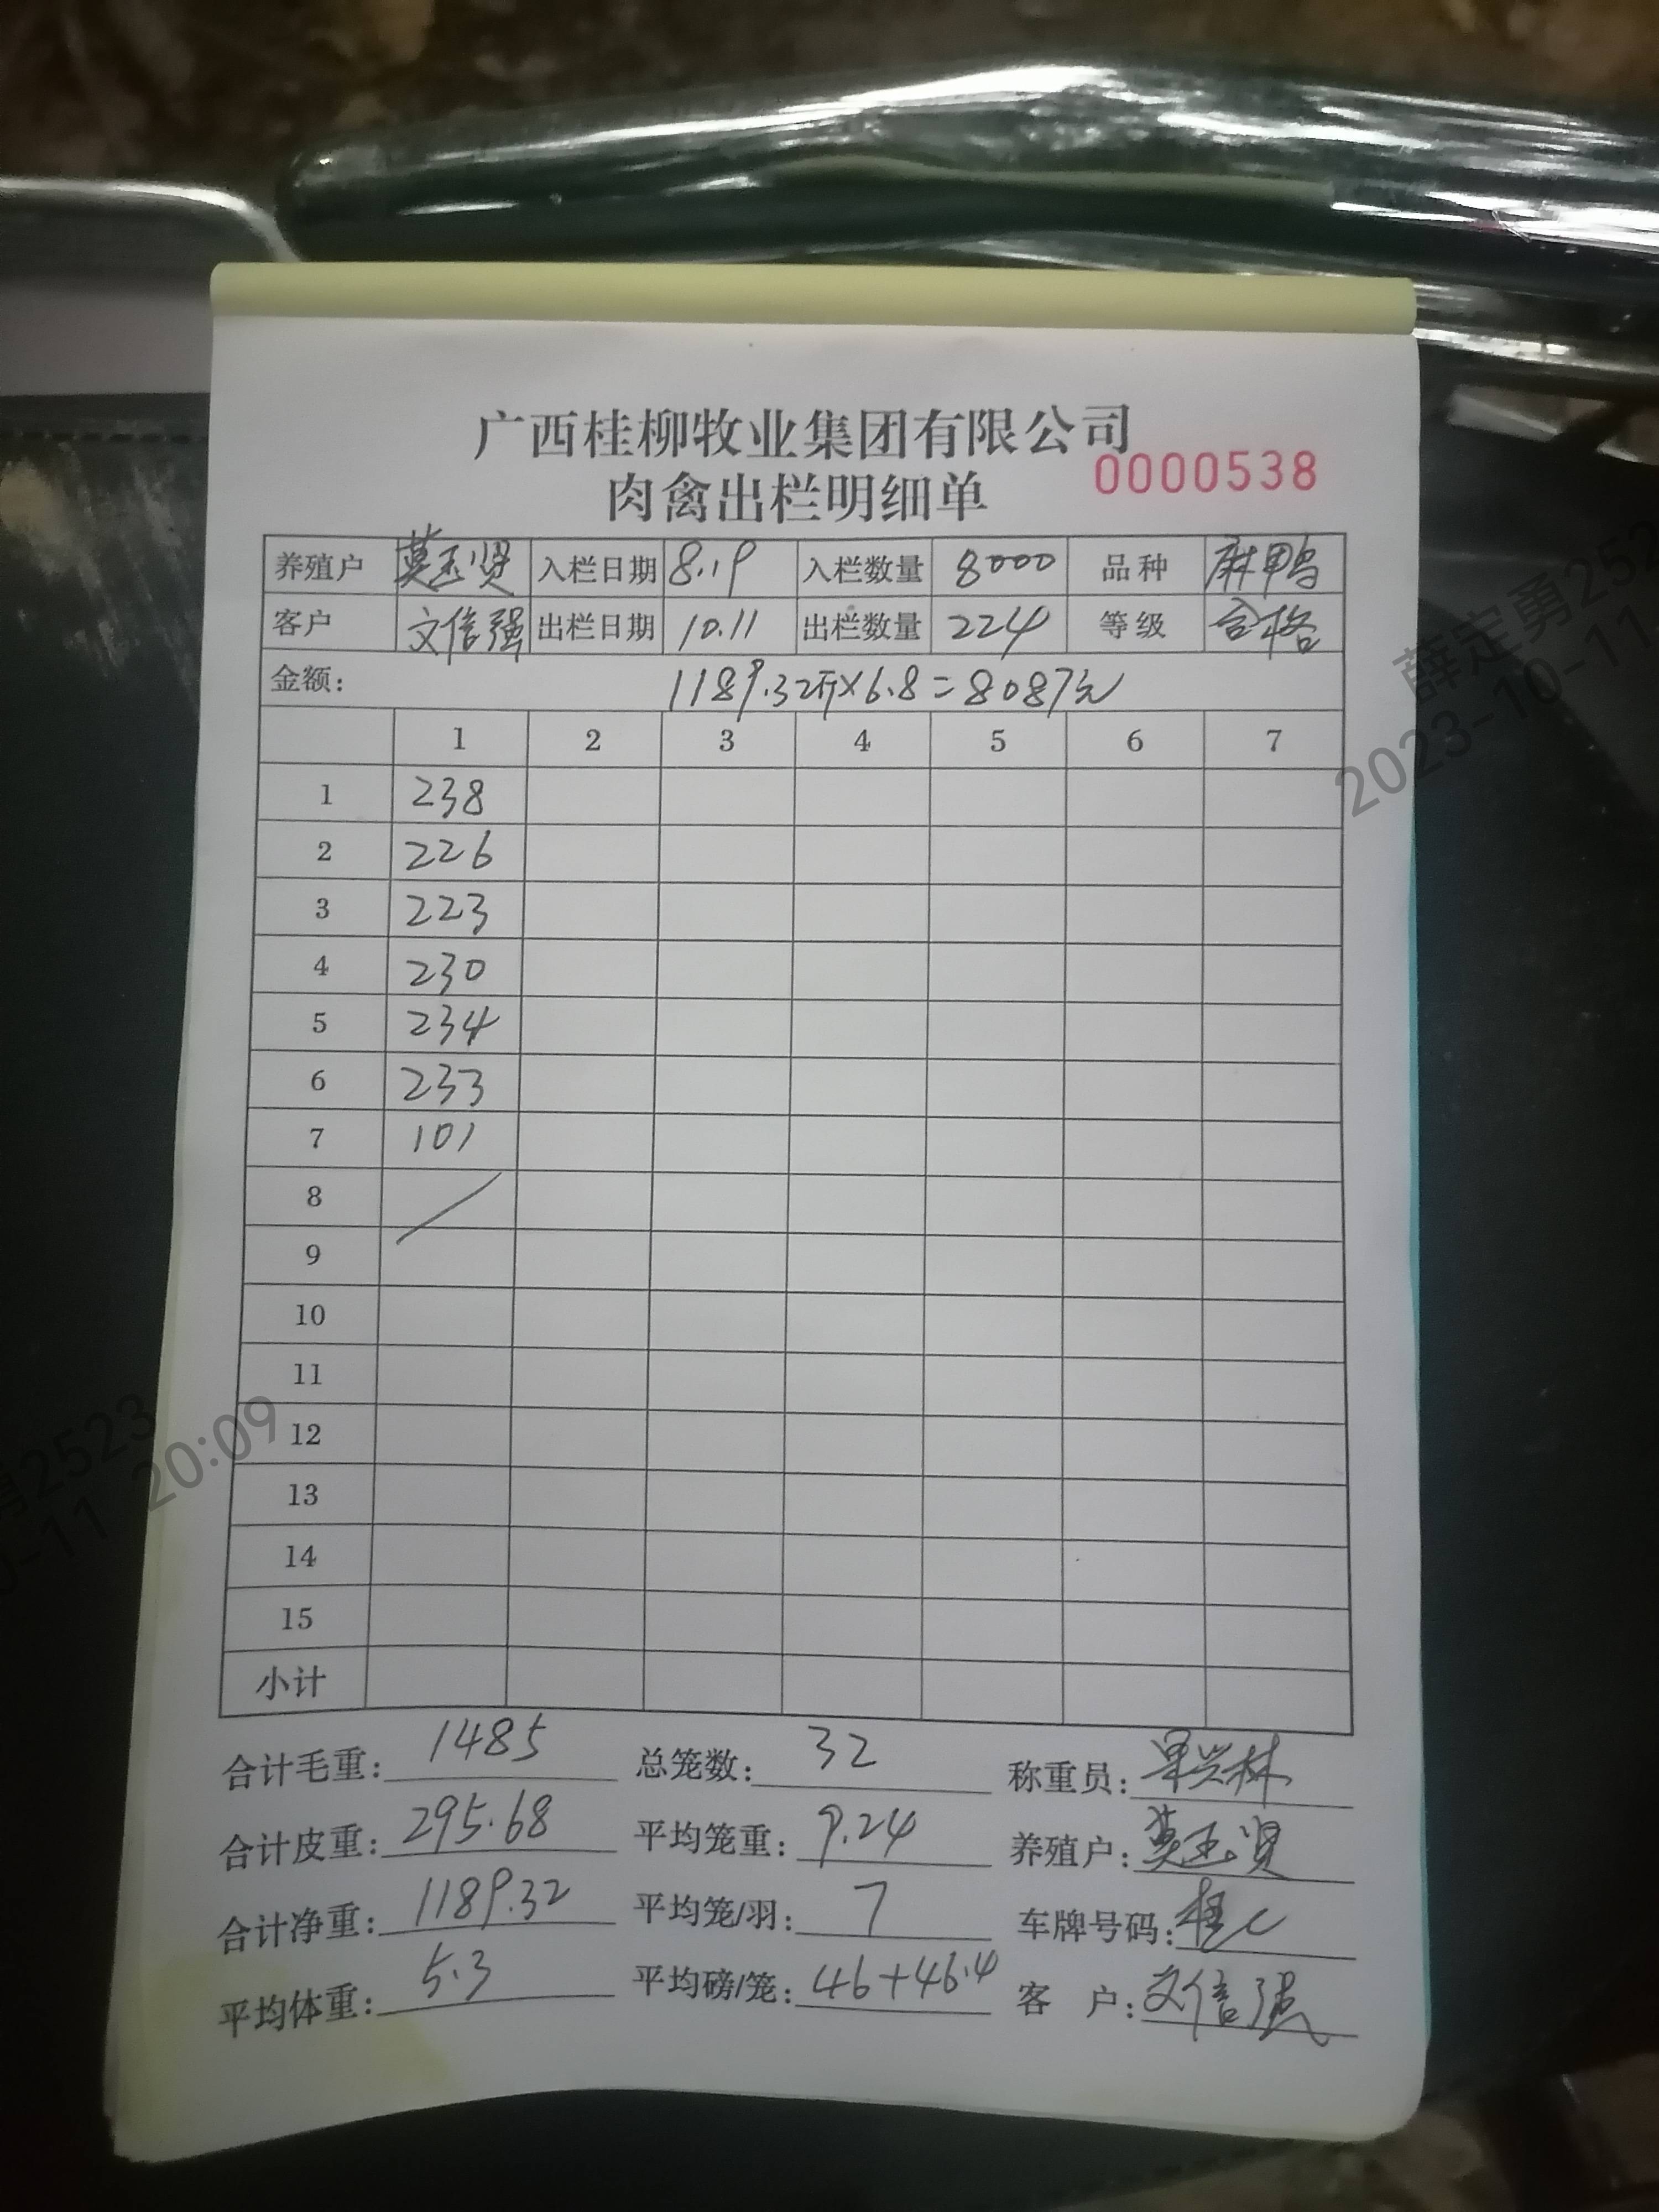 广西桂柳牧业集团有限公司
肉禽出栏明细单 0000538
养殖户 莫玉贤 入栏日期 8.19 入栏数量 8000 品种 麻鸭
客户 文信强 出栏日期 10.11 出栏数量 224 等级 合格
金额: 1189.32斤×6.8=8087元
1 2 3 4 5 6 7
1 238
2 226
3 223
4 230
5 234
6 233
7 101
8
9
10
11
12
13
14
15
小计
合计毛重: 1485 总笼数: 32 称重员: 兴林
合计皮重: 295.68 平均笼重: 9.24 养殖户: 莫玉贤
合计净重: 1189.32 平均笼/羽: 7 车牌号码: 桂C
平均体重: 5.3 平均磅/笼: 46+46.4 客 户: 文信强
薛定勇252
2023-10-11
勇2523
0-11 20:09